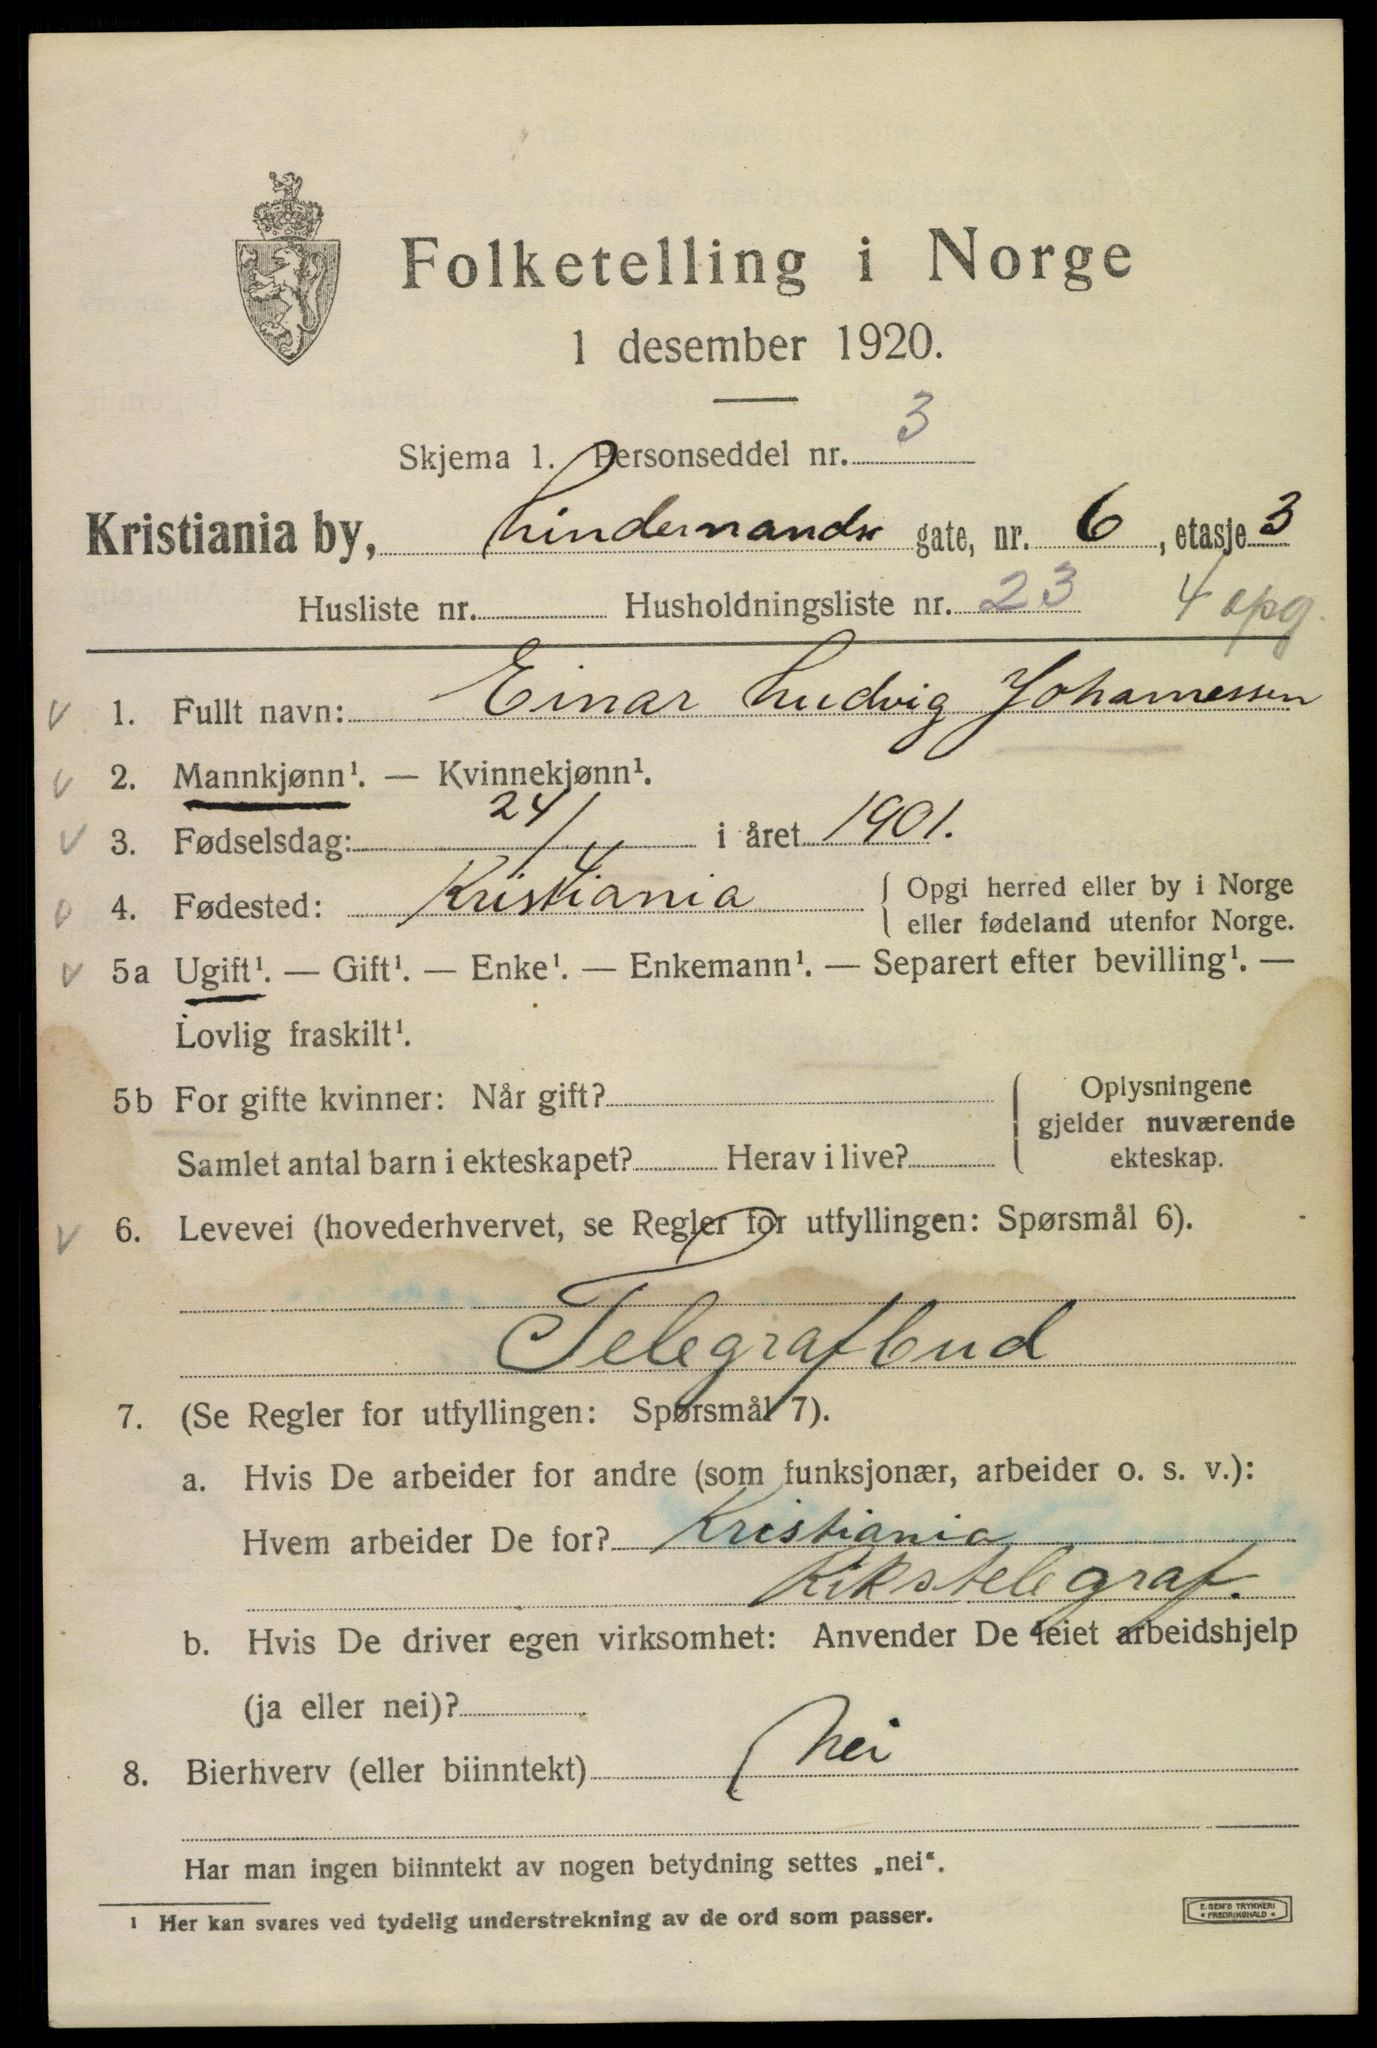 Folketelling i Norge
1 desember 1920.
Skjema 1. Personseddel nr. 3
Kristiania by, gate, nr. 6, etasje 3
Husliste nr. Husholdningsliste nr. 23 4 opg.
v 1. Fullt navn: Einar Ludvig Johannessen
v 2. Mannkjønn¹. — Kvinnekjønn¹.
v 3. Fødselsdag: 24/4 i året 1901.
0 4. Fødested: Kristiania { Opgi herred eller by i Norge
eller fødeland utenfor Norge.
v 5a Ugift¹. — Gift¹. — Enke¹. — Enkemann¹. — Separert efter bevilling¹. —
Lovlig fraskilt¹.
5b For gifte kvinner: Når gift? { Oplysningene
gjelder nuværende
Samlet antal barn i ekteskapet? Herav i live? ekteskap.
v 6. Levevei (hovederhvervet, se Regler for utfyllingen: Spørsmål 6).
Telegrafbud
7. (Se Regler for utfyllingen: Spørsmål 7).
a. Hvis De arbeider for andre (som funksjonær, arbeider o. s. v.):
Hvem arbeider De for? Kristiania
Rikstelegraf.
b. Hvis De driver egen virksomhet: Anvender De leiet arbeidshjelp
(ja eller nei)?
8. Bierhverv (eller biinntekt) Nei
Har man ingen biinntekt av nogen betydning settes „nei“.
¹ Her kan svares ved tydelig understrekning av de ord som passer.
E. SEM'S TRYKKERI
• FREDRIKSHALD •